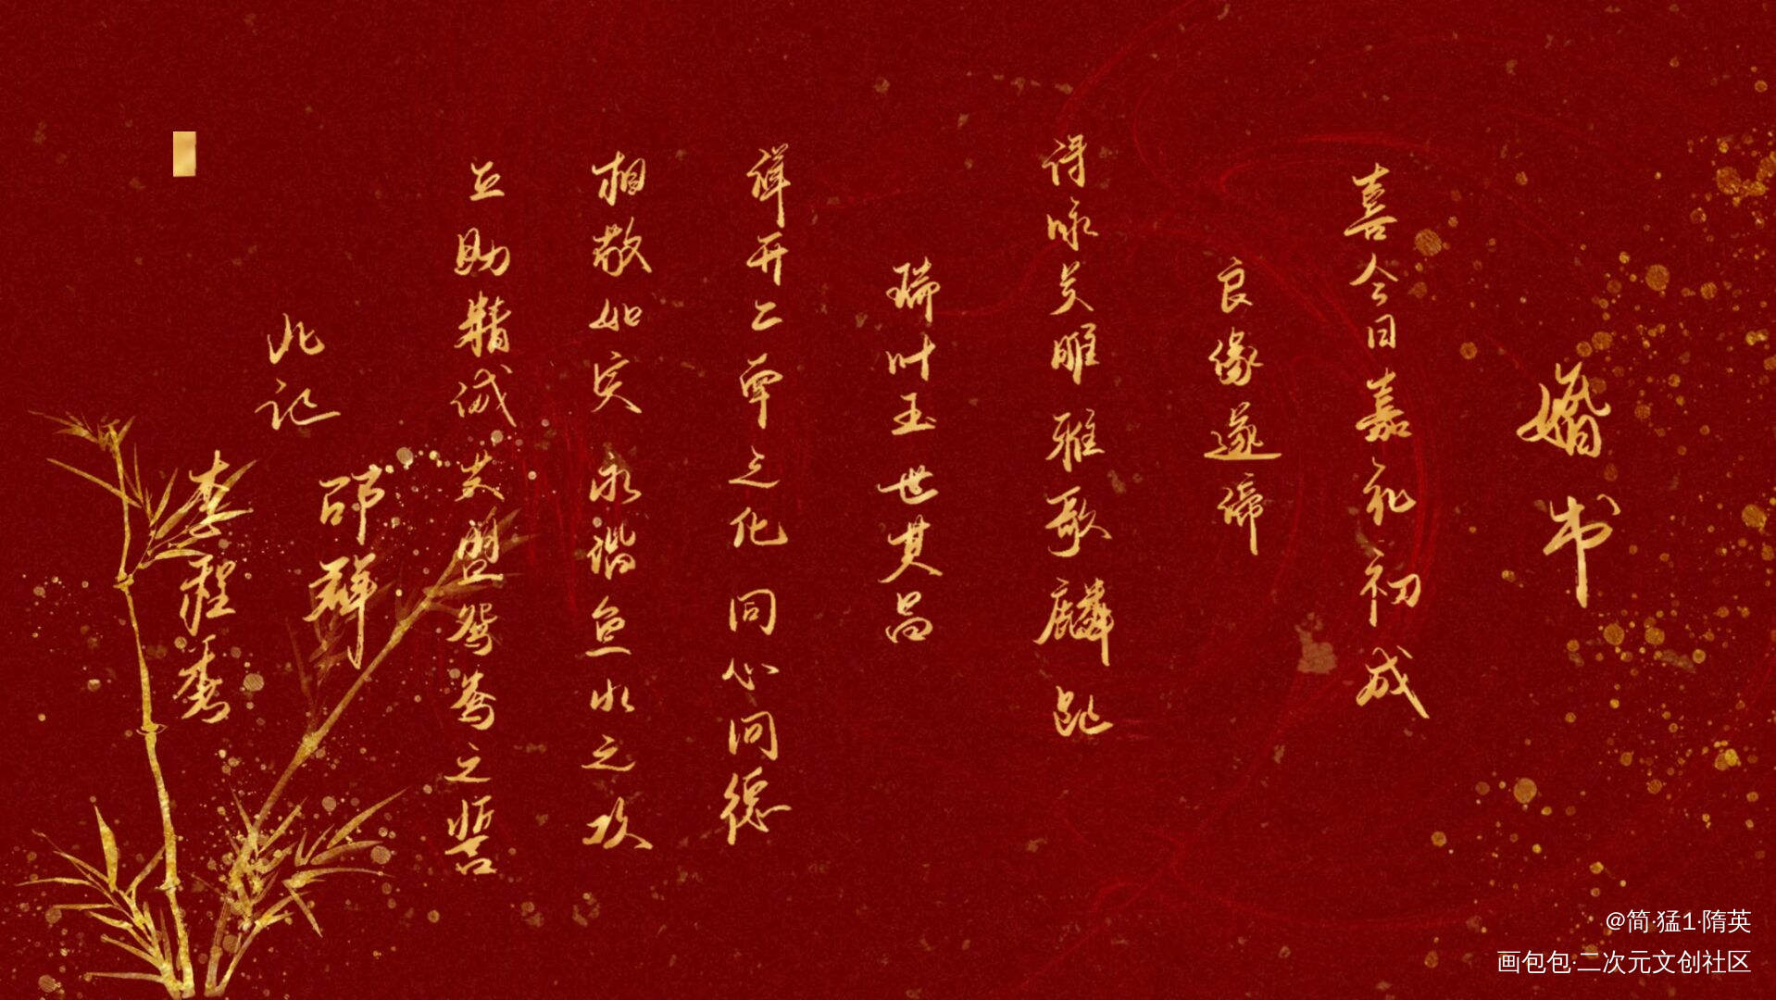 婚书
喜今日嘉礼初成
良缘遂缔
诗咏关雎雅歌麟趾
瑞叶五世其昌
祥开二南之化同心同德
相敬如宾永谐鱼水之欢
互助精诚共盟鸳鸯之誓
此记
邵群
李程秀
@简·猛1·隋英
画包包·二次元文创社区